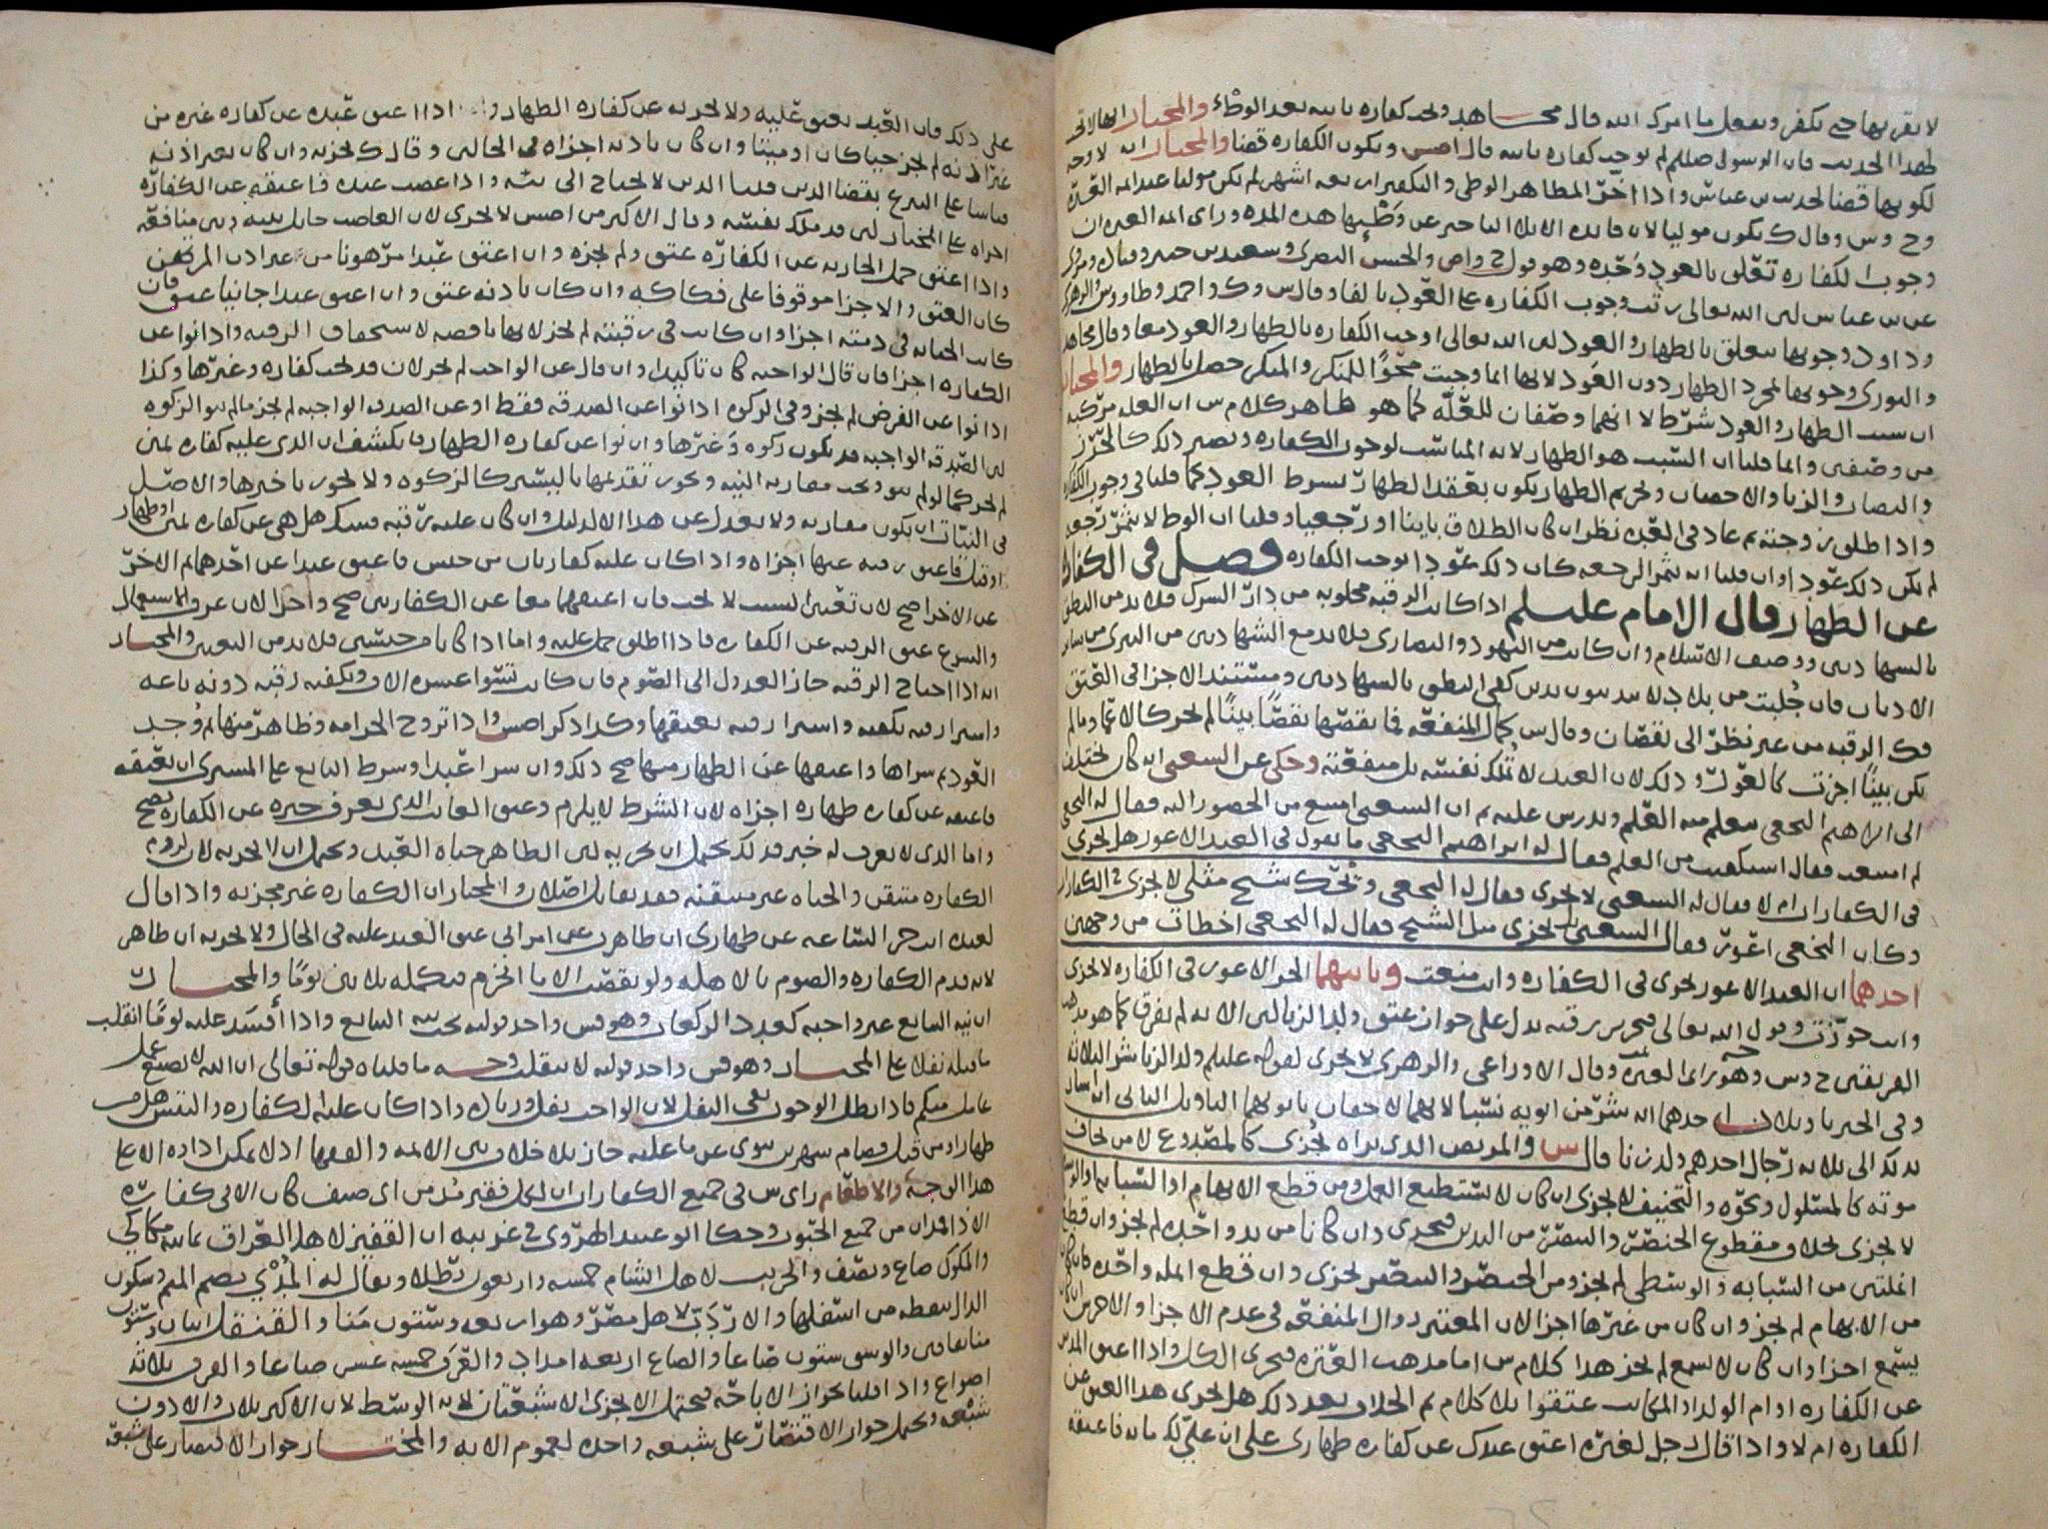 لا يقربها حتى يكفر ويفعل ما امرك الله قال مجاهد وتجب كفاره ثانيه بعد الوطء والمختار انها لا تجب
لهذا الحديث فان الرسول صللم لم يوجب كفاره ثانيه قال اصس ويكون الكفاره قضا والمختار انه لا وجه
لكونها قضا لحديث بن عباس واذا اخر المظاهر الوطى والتكفير اربعه اشهر لم يكن موليا عند ايمه العتره
وح وس وقال ك يكون موليا لان فايده الايلا التاخير عن وطئها هذه المده وراى ايمه العتره ان
وجوب الكفاره تعلق بالعود وحده وهو قول ح واص والحسن البصرى وسعيد بن جبير
عن بن عباس لان الله تعالى رتب وجوب الكفاره على العود بالفا وقال س وك واحمد وطاووس والزهرى
وداود وجوبها يتعلق بالظهار والعود لان الله تعالى اوجب الكفاره بالظهار والعود معا وقال مجاهد
والثورى وجوبها لمجرد الظهار دون العود لانها انما وجبت محوا للمنكر والمنكر حصل بالظهار والمختار
ان سبب الظهار والعود شرط لا انهما وصفان للعله كما هو ظاهر كلام س ان العله مركبه
من وصفين وانما قلنا ان السبب هو الظهار لانه المناسب لوجوب الكفاره ويصير ذلك كالحرز
والنصاب والزنا والاحصان وتحريم الظهار يكون بعقد الظهار بشرط العود كما قلنا فى وجوب الكفاره
واذا طلق زوجته ثم عاد فى العده نظر ان كان الطلاق باينا او رجعيا وقلنا ان الوطا لا يثمر رجعه
لم يكن ذلك عودا وان قلنا انه يثمر الرجعه كان ذلك عودا يوجب الكفاره فصل فى الكفاره
عن الظهار قال الامام عليلم اذا كانت الرقبه مجلوبه من دار الشرك فلا بد من النطق
بالشهادتين ووصف الاسلام وان كانت من اليهود والنصارى فلا بد مع الشهادتين من التبرى من ساير
الاديان فان جلبت من بلاد لا يتدينون بدين كفى النطق بالشهادتين ومستند الاجزا فى العتق
فك الرقبه من غير نظر الى نقصان وقال س كمال المنفعه فما نقصها نقصا بينا لم يجز كالاعما وما لم
يكن بينا اجزت كالعور وذلك لان العبد لا تملك نفسه بل منفعته وحكى عن الشعبى انه كان يختلف
الى ابراهيم النخعى يتعلم منه العلم ويدرس عليه ثم ان الشعبى امتنع من الحضور اليه فقال له النخعى
لم امتنعت فقال استكفيت من العلم فقال له ابراهيم النخعى ما تقول فى العبد الاعور هل يجزى
فى الكفارات ام لا فقال له الشعبى لا يجزى فقال له النخعى ويحك شيخ مثلى لا يجزى فى الكفارات
وكان النخعى اعور فقال الشعبى بل يجزى مثل الشيخ فقال له النخعى اخطات من وجهين
احدهما ان العبد الاعور يجزى فى الكفاره وانت منعت وثانيهما الحر الاعور فى الكفاره لا يجزى
وانت جوزت وقول الله تعالى فتحرير رقبه يدل على جواز عتق ولد الزنا لان الايه لم تفرق كما هو مذهب
الفريقين ح وس وهو راى العتره وقال الاوزاعى والزهرى لا يجزى لقوله عليلم ولد الزنا شر الثلاثه
وفى الخبر تاويلان احدهما انه شر من ابويه نسبا لانهما لاحقان بابويهما التاويل الثانى انه اشار
بذلك الى ثلاثه رجال احدهم ولد زنا قال س والمريض الذى براه يجزى كالمصدوع لا من يخاف
موته كالمسلول ونحوه والنحيف لا يجزى ان كان لا يستطيع العمل ومن قطع الابهام او السبابه او الوسطى
لا يجزى بخلاف مقطوع الخنصر والبنصر من اليدين فيجزى وان كانا من يد واحده لم يجز وان قطع
انملتين من السبابه والوسطى لم يجز ومن الخنصر والبنصر يجزى وان قطع انمله واحده فان كان
من الابهام لم يجز وان كان من غيرها اجزا لان المعتبر زوال المنفعه فى عدم الاجزا والاخرس ان كان
يسمع اجزا وان كان لا يسمع لم يجز هذا كلام س اما مذهب العتره فيجزى الكل واذا اعتق المدبر
عن الكفاره او ام الولد او المكاتب عتقوا بلا كلام ثم الخلاف بعد ذلك هل يجزى هذا العتق عن
الكفاره ام لا واذا قال رجل لغيره اعتق عبدك عن كفاره ظهارى على ان على لك مايه فاعتقه
على ذلك فان العبد يعتق عليه ولا يجزيه عن كفاره الظهار واذا اعتق عبده عن كفاره غيره من
غير اذنه لم يجز حيا كان او ميتا وان كان باذنه اجزاه فى الحالين وقال ك يجزيه وان كان بغير اذنه
قياسا على التبرع بقضا الدين قلنا الدين لا يحتاج الى نيه واذا غصب عبده فاعتقه عن الكفاره
اجزاه على المختار لان قد ملك نفسه وقال الاكثر من اصس لا يجزى لان الغاصب حايل بينه وبين منافعه
واذا اعتق حمل الجاريه عن الكفاره عتق ولم يجزه وان اعتق عبدا مرهونا من غير اذن المرتهن
كان العتق والاجزا موقوفا على فكاكه وان كان باذنه عتق وان اعتق عبدا جانيا عتق فان
كانت الجنايه فى ذمته اجزا وان كانت فى رقبته لم يجز لانها ناقصه لاستحقاق الرقبه واذا نوا عن
الكفاره اجزا فان قال الواجبه كان تاكيدا وان قال عن الواجب لم يجز لان قد تجب كفاره وغيرها وكذا
اذا نوا عن الفرض لم يجز وفى الزكوه اذا نوا عن الصدقه فقط او عن الصدقه الواجبه لم يجز ما لم ينو الزكوه
لان الصدقه الواجبه قد يكون زكوه وغيرها وان نوا عن كفاره الظهار فانكشف ان الذى عليه كفاره يمين
لم يجز كما لو لم ينو وتجب مقارنه النيه ويجوز تقديمها باليسير كالزكوه ولا يجوز تاخيرها والاصل
فى النيات ان يكون مقارنه ولا يعدل عن هذا الا لدليل وان كان عليه رقبه فشك هل هى عن كفاره يمين او ظهار
او قتل فاعتق رقبه عنها اجزاه واذا كان عليه كفارتان من جنس فاعتق عبدا عن احدهما ثم الاخر
عن الاخرا صح لان تعيين السبب لا يجب فان اعتقهما معا عن الكفارتين صح واجزا لان عرف الاستعمال
والشرع عتق الرقبه عن الكفاره فاذا اطلق حمل عليه واما اذا كانا من جنسين فلا بد من التعيين والمختار
انه اذا احتاج الرقبه جاز العدول الى الصوم فان كانت تسوا عشره الاف ويكفيه رقبه دونه باعه
واشترا رقبه تكفيه واشترا رقبه يعتقها وكذا ذكر اصس واذا تزوج الحر امه وظاهر منها ثم وجد
العود ثم شراها واعتقها عن الظهار منها صح ذلك وان شرا عبدا وشرط البايع على المشترى ان يعتقه
فاعتقه عن كفاره ظهاره اجزاه لان الشرط لا يلزم وعتق الغايب الذى يعرف خبره عن الكفاره يصح
واما الذى لا يعرف له خبر فذلك يحتمل ان يجزيه لان الظاهر حياه العبد ويحتمل ان لا يجزيه لان لزوم
الكفاره متيقن والحياه غير متيقنه فقد تقابل اصلان والمختار ان الكفاره غير مجزيه واذا قال
لعبده انت حر الساعه عن ظهارى ان ظاهرت عن امراتى عتق العبد عليه فى الحال ولا يجزيه ان ظاهر
لانه قدم الكفاره والصوم بالاهله ولو نقصت الا ما انخرم فيكمله ثلاثين يوما والمختار
ان نيه التتابع غير واجبه كعدد الركعات وهو قس واحد قوليه يجب نيه التتابع واذا افسد عليه يوما انقلب
ما قبله نفلا على المختار وهو قس واحد قوليه لا ينقلب وجه ما قلناه قوله تعالى ان الله لا يضيع عمل
عامل منكم فاذا بطل الوجوب بقى النفل لان الواجب نفل وزياده واذا كان عليه الكفاره والتبس هل من
ظهار او من قتل فصام شهرين ينوى عن ما عليه جاز بلا خلاف بين الايمه والفقها اذ لا يمكن اداه الا على
هذا الوجه والاطعام راى س فى جميع الكفارات ان لكل فقير مد من اى صنف كان الا فى كفاره
الاذا فمدان من جميع الحبوب وحكا ابو عبيد الهروى فى غريبه ان القفيز لاهل العراق ثمانيه مكاكى
والمكوك صاع ونصف والجريب لاهل الشام خمسه واربعون رطلا ويقال له المدى بضم الميم وسكون
الدال بنقطه من اسفلها والاردب لاهل مصر وهو اربعه وستون منا والقنقل اثنان وستون
منا والوسق ستون صاعا والصاع اربعه امداد والفرق خمسه عشر صاعا والفرق ثلاثه
اصواع واذا قلنا بجواز الاباحه فيحتمل الا يجزى الا شبعتان لانه الوسط لان الاكثر ثلاث والادون
شبعه ويحتمل جواز الاقتصار على شبعه واحده لعموم الايه والمختار جواز الاقتصار على شبعه